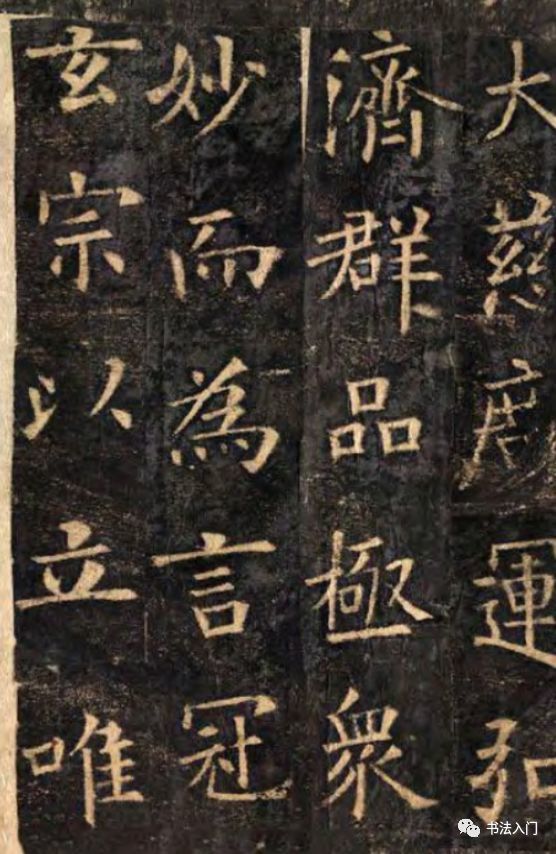 大慈運弘
濟群品極衆
妙而為言冠
玄宗以立唯
书法入门